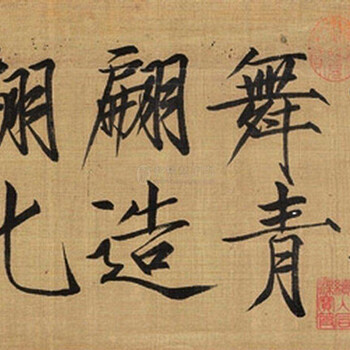 舞青
翩造
翩化